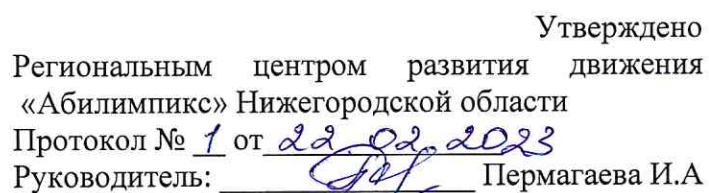 Утверждено
Региональным центром развития движения
«Абилимпикс» Нижегородской области
Протокол № 1 от 22.02.2023
Руководитель: Пермагаева И.А